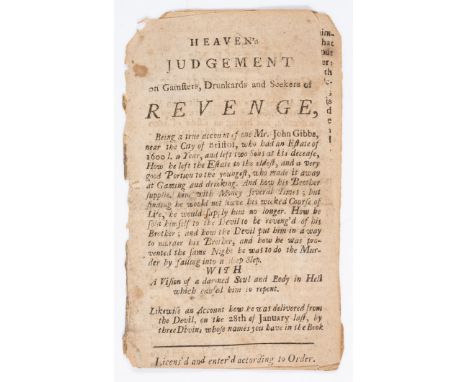 HEAVEN's
JUDGEMENT
on Gamsters, Drunkards and Seekers of
REVENGE,
Being a true account of one Mr. John Gibbs,
near the City of Bristol, who had an Estate of
1600 l. a Year, and left two Sons at his decease,
How he left the Estate to the eldest, and a very
good Portion to the youngest, who made it away
at Gaming and drinking. And how his Brother
supplied him with Money several Times; but
finding he would not leave his wicked Course of
Life, he would supply him no longer. How he
sold himself to the Devil to be reveng'd of his
Brother; and how the Devil put him in a way
to murder his Brother, and how he was pre-
vented the same Night he was to do the Mur-
der by falling into a deep Sleep.
WITH
A Vision of a damned Soul and Body in Hell
which caused him to repent.
Likewise an Account how he was delivered from
the Devil, on the 28th of January last, by
three Divines whose names you have in the Book
Licens'd and enter'd according to Order.